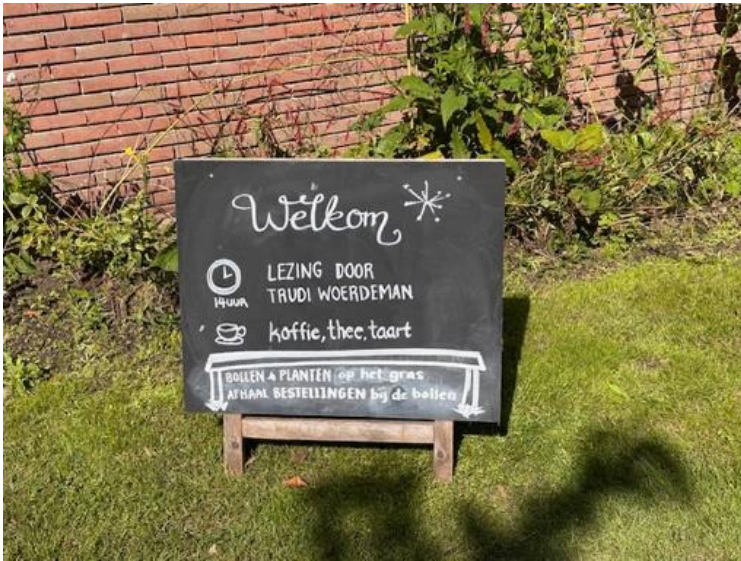 Welkom
LEZING DOOR
14 UUR
TRUDI WOERDEMAN
koffie, thee, taart
BOLLEN & PLANTEN op het gras
AFHAAL BESTELLINGEN bij de bollen